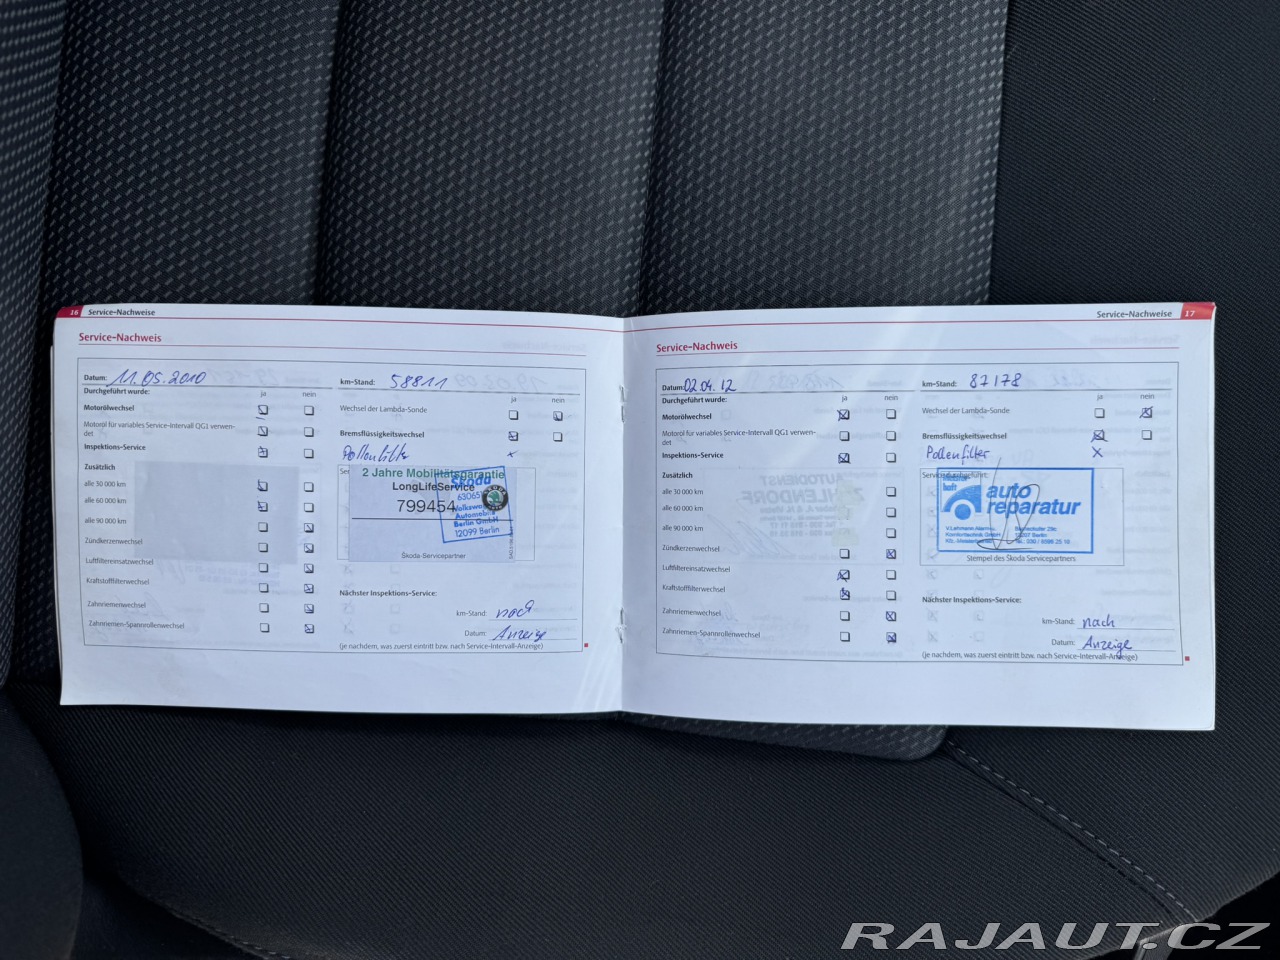 16 Service-Nachweise
Service-Nachweis
Datum: 11.05.2010 km-Stand: 58811
Durchgeführt wurde:
ja nein ja nein
Motorölwechsel
Wechsel der Lambda-Sonde
Motoröl für variables Service-Intervall QG1 verwen-
det
Bremsflüssigkeitswechsel
Inspektions-Service
Pollenfilter
Zusätzlich
alle 30 000 km
alle 60 000 km
alle 90 000 km
Zündkerzenwechsel
Luftfiltereinsatzwechsel
Kraftstofffilterwechsel
Zahnriemenwechsel
Zahnriemen-Spannrollenwechsel
2 Jahre Mobilitätsgarantie
LongLifeService
799454
Skoda
63065
Volkswa
Automobile
Berlin GmbH
12099 Berlin
Škoda-Servicepartner
Nächster Inspektions-Service:
km-Stand: nach
Datum: Anzeige
(je nachdem, was zuerst eintritt bzw. nach Service-Intervall-Anzeige)
Service-Nachweise 17
Service-Nachweis
Datum: 02.04.12 km-Stand: 87178
Durchgeführt wurde:
ja nein ja nein
Motorölwechsel
Wechsel der Lambda-Sonde
Motoröl für variables Service-Intervall QG1 verwen-
det
Bremsflüssigkeitswechsel
Inspektions-Service
Pollenfilter
Zusätzlich
alle 30 000 km
alle 60 000 km
alle 90 000 km
Zündkerzenwechsel
Luftfiltereinsatzwechsel
Kraftstofffilterwechsel
Zahnriemenwechsel
Zahnriemen-Spannrollenwechsel
auto
reparatur
12207 Berlin
Stempel des Škoda Servicepartners
Nächster Inspektions-Service:
km-Stand: nach
Datum: Anzeige
(je nachdem, was zuerst eintritt bzw. nach Service-Intervall-Anzeige)
RAJAUT.CZ